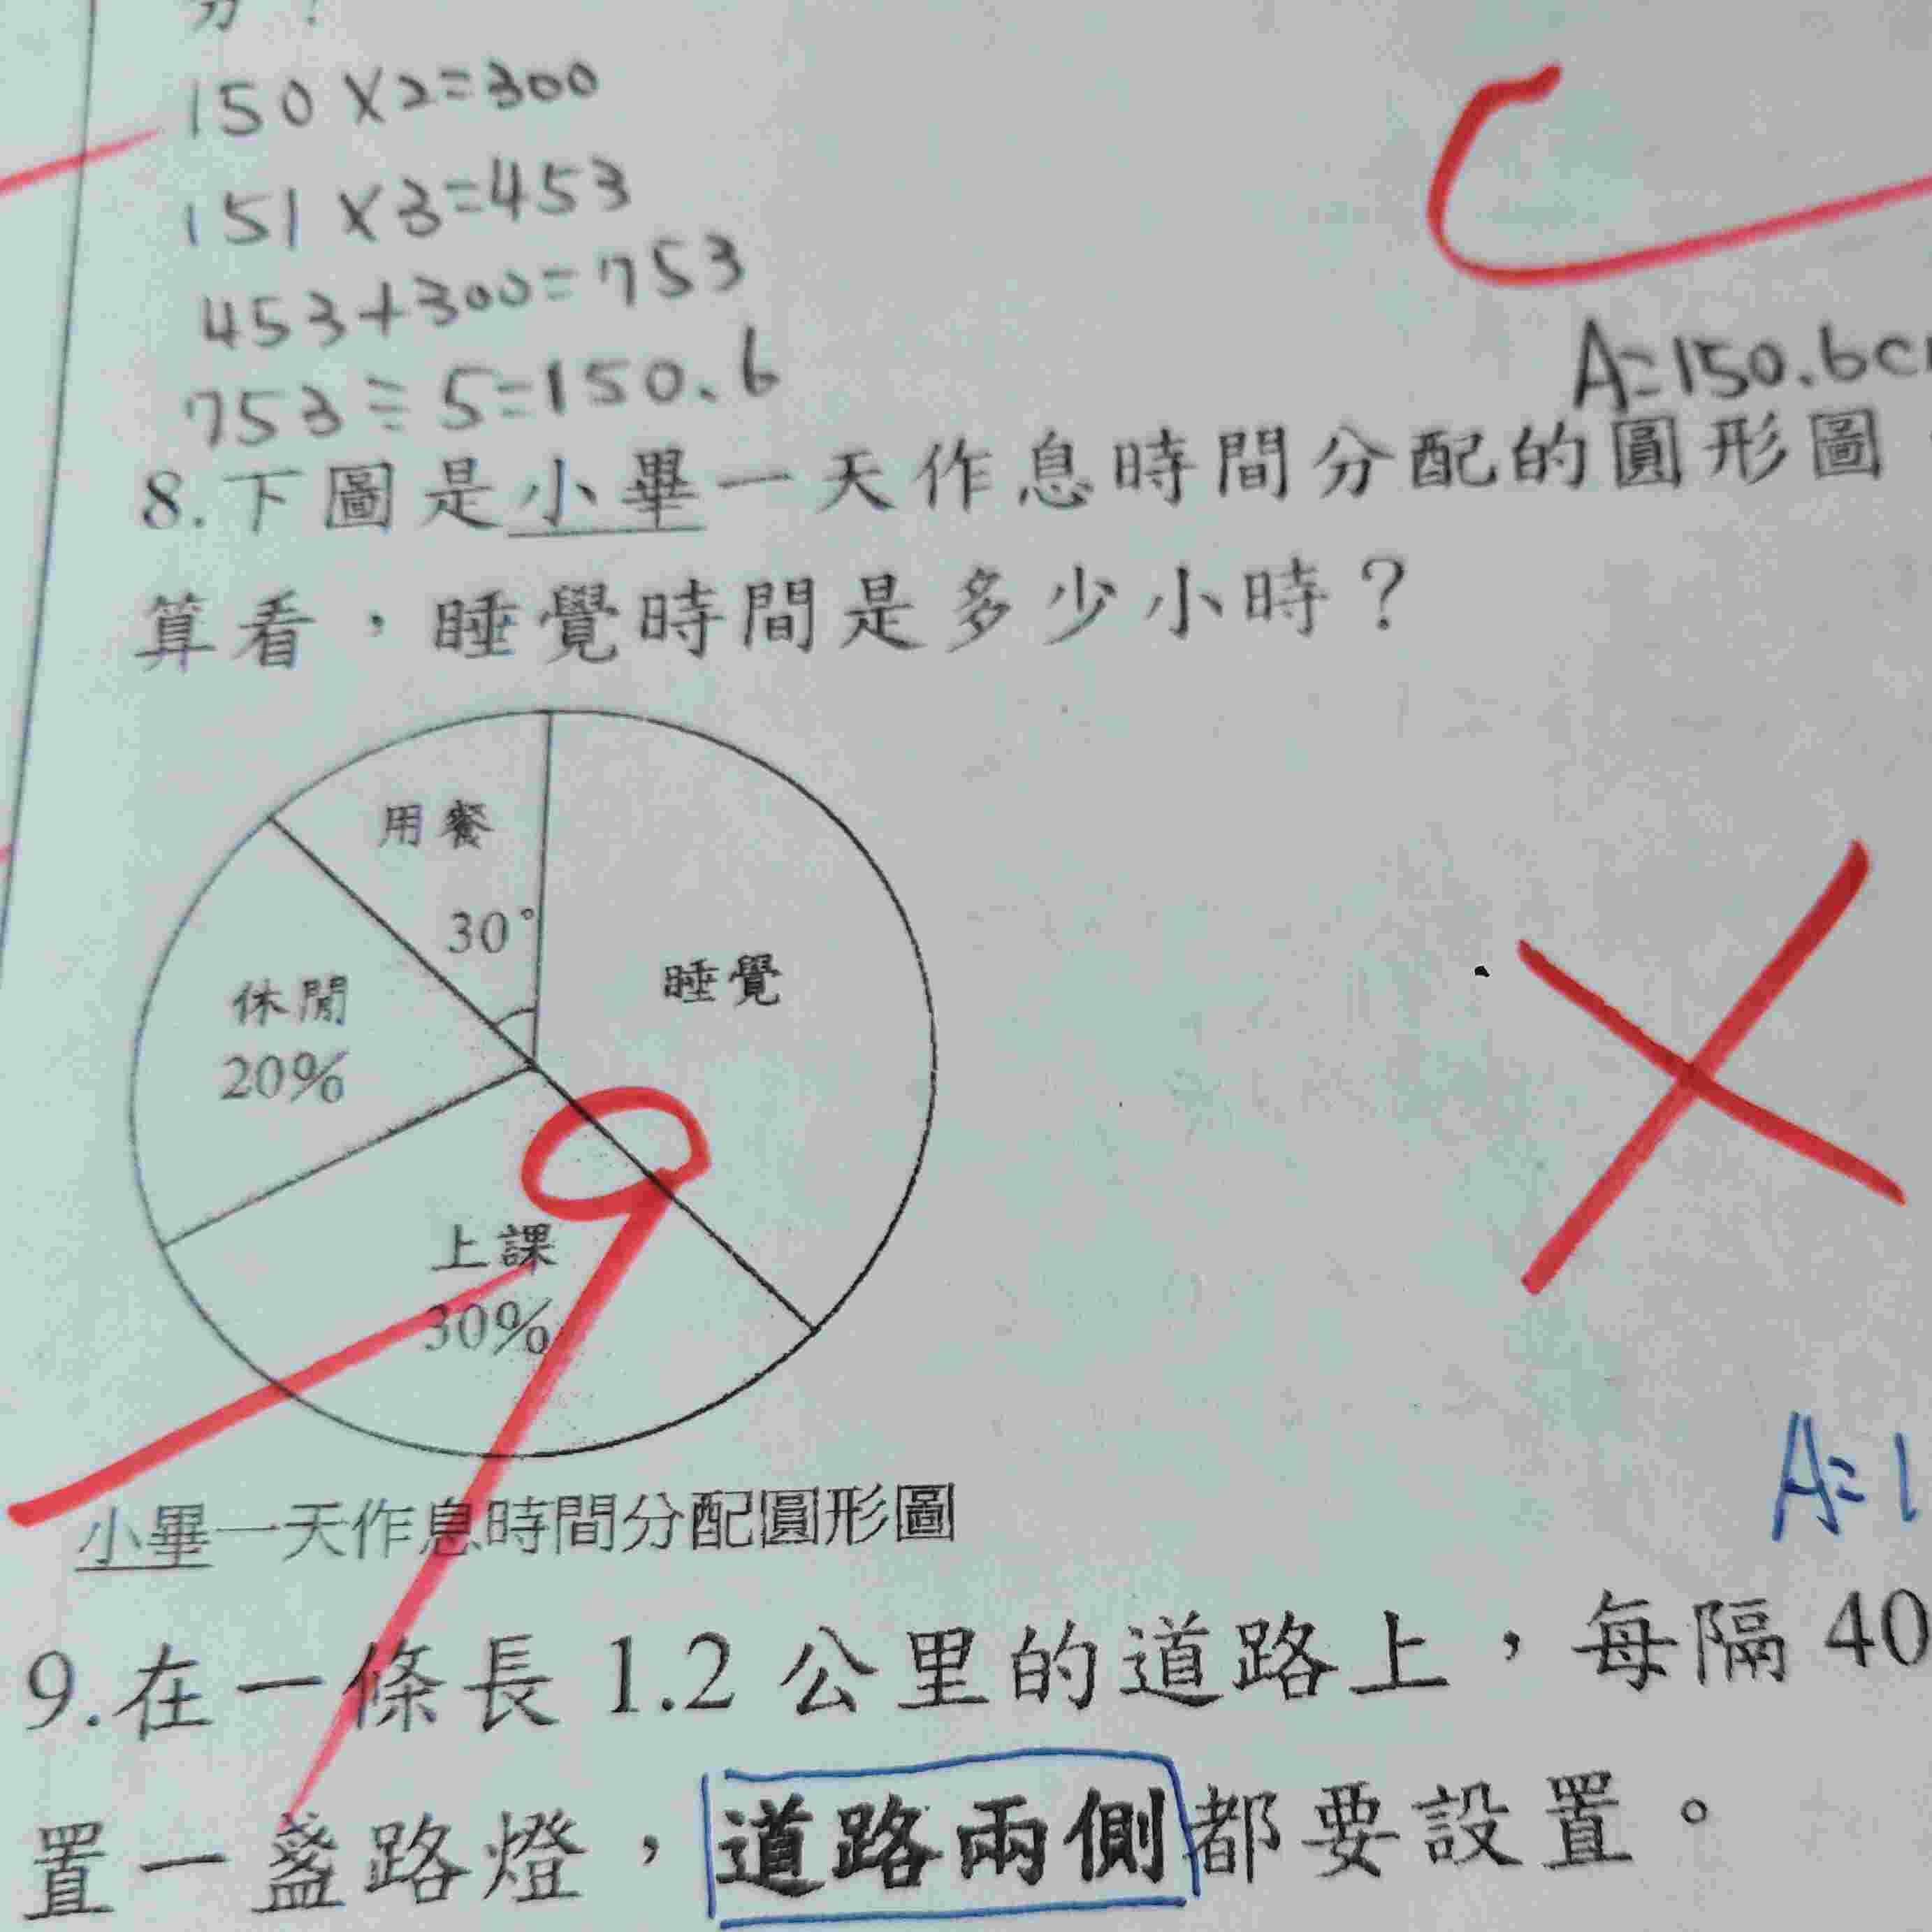 分?
150×2=300
151×3=453
453+300=753
753÷5=150.6
A=150.6c
8.下圖是小畢一天作息時間分配的圓形圖
算看,睡覺時間是多少小時?
用餐
30°
睡覺
休閒
20%
上課
30%
A=1
小畢一天作息時間分配圓形圖
9.在一條長1.2公里的道路上,每隔40
置一盞路燈,道路兩側都要設置。